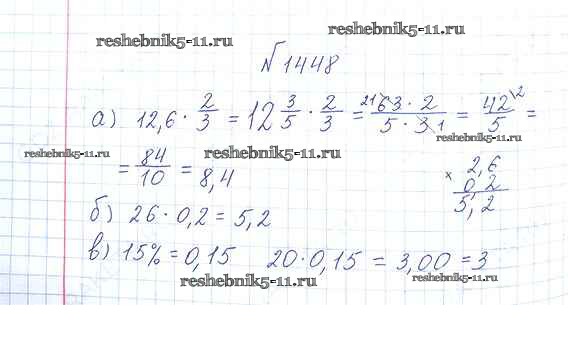 reshebnik5-11.ru
reshebnik5-11.ru
№ 1448
а) 12,6 · 2/3 = 12 3/5 · 2/3 = 21 63 · 2 / 5 · 3 1 = 42 \2 / 5 =
reshebnik5-11.ru
reshebnik5-11.ru
reshebnik5-11.ru
= 84/10 = 8,4
× 2,6
0,2
5,2
б) 26 · 0,2 = 5,2
в) 15% = 0,15 20 · 0,15 = 3,00 = 3
reshebnik5-11.ru
reshebnik5-11.ru